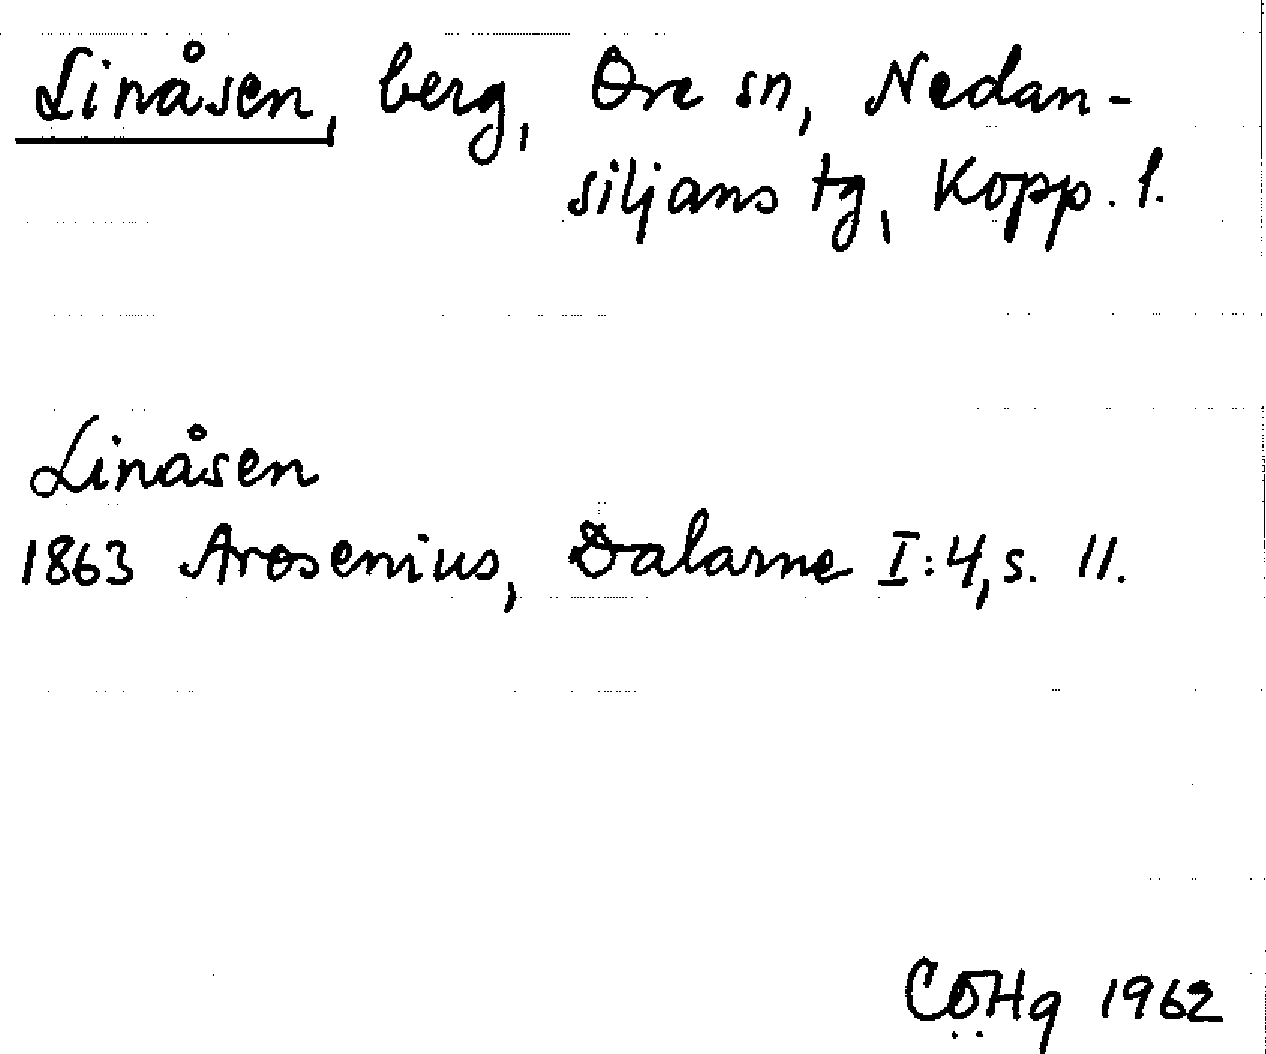 Linåsen, berg, Ore sn, Nedan-
siljans tg, Kopp. l.
Linåsen
1863 Arosenius, Dalarne I:4, s. 11.
CÖHg 1962